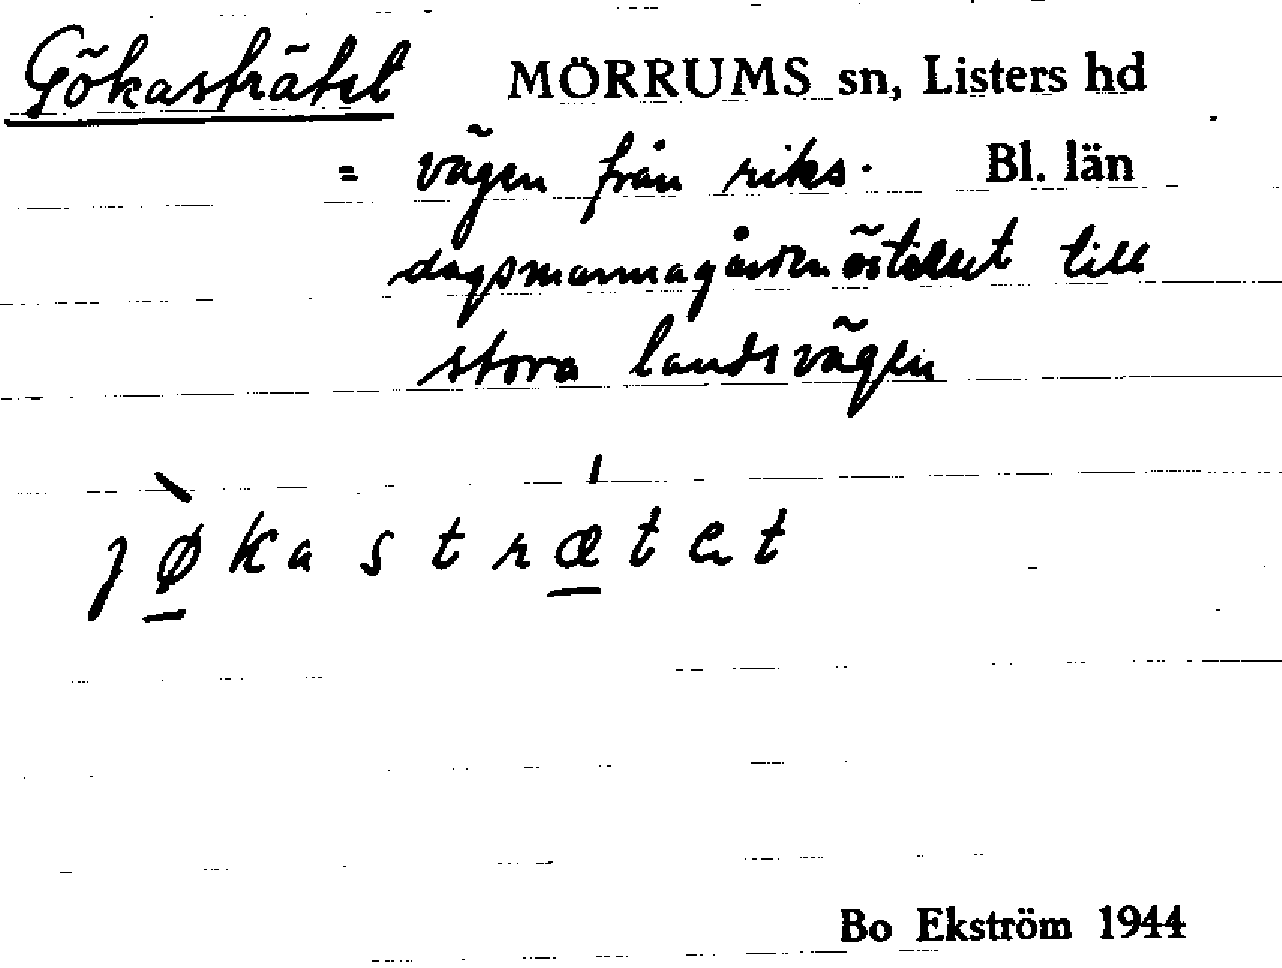 Gökasträtet MÖRRUMS sn, Listers hd
= vägen från riks- Bl. län
dagsmannagården österut till
stora landsvägen
jø̱̀kastrǽ̱tet
Bo Ekström 1944